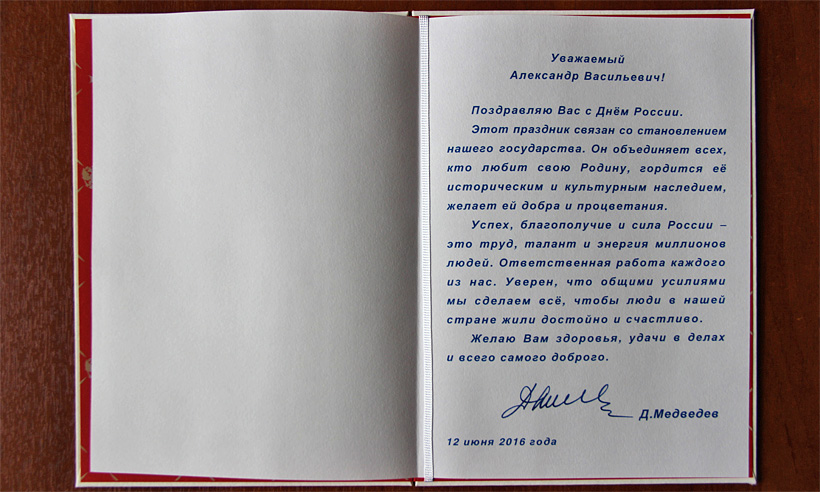 Уважаемый
Александр Васильевич!
Поздравляю Вас с Днём России.
Этот праздник связан со становлением
нашего государства. Он объединяет всех,
кто любит свою Родину, гордится её
историческим и культурным наследием,
желает ей добра и процветания.
Успех, благополучие и сила России –
это труд, талант и энергия миллионов
людей. Ответственная работа каждого
из нас. Уверен, что общими усилиями
мы сделаем всё, чтобы люди в нашей
стране жили достойно и счастливо.
Желаю Вам здоровья, удачи в делах
и всего самого доброго.
Д.Медведев
12 июня 2016 года